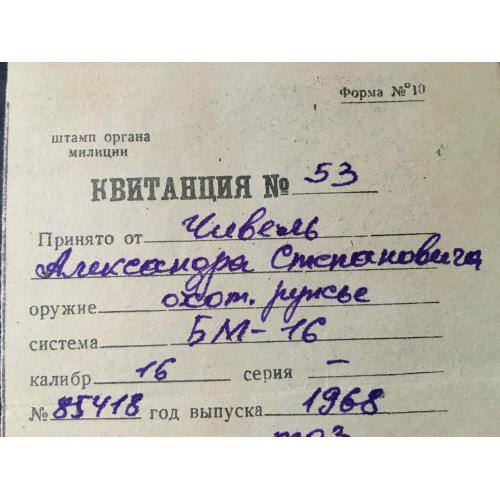 Форма № 10
штамп органа
милиции
КВИТАНЦИЯ № 53
Принято от Чивель
Александра Степановича
оружие охот. ружье
система БМ-16
калибр 16 серия –
№ 85418 год выпуска 1968
тоз